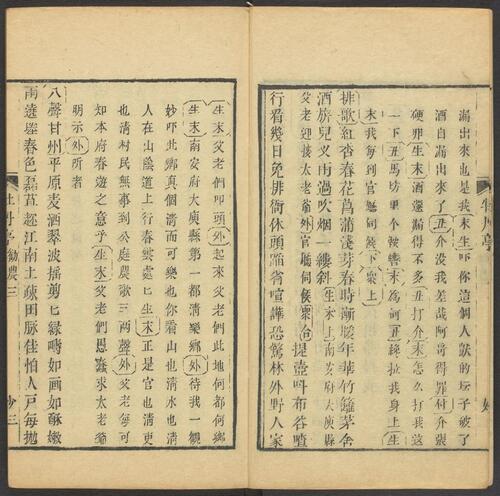 漏出來也是我末生吓你這個人獃的坛子破了
酒自漏出來了丑介没我差哉阿哥得罪付介張
硬弗生末酒還騙得不多丑打介末怎么打我這
一下丑馬坊里个鞍轡末為何丑拉我身上生
末我每到官廳伺候下衆上
排歌紅杏春花菖蒲淺芽春時漸暖年華竹籬茅舍
酒旂兒叉雨過吹烟一縷斜生末上南安府大庾縣
父老迎接太老爺外官廳伺候衆合提壺叫布谷喳
行看幾日免排衙休頭踏省喧譁恐驚林外野人家
生末父老們叩頭外起來父老們此地何都何鄉
生末南安府大庾縣第一都清樂鄉外待我一觀
妙吓此鄉真個清而可樂也你看山也清水也清
人在山陰道上行春雲處匕生末正是官也清吏
也清村民無事到公庭農歌三兩聲外父老每可
知本府春遊之意乎生末父老們愚蠢求太老爺
明示外所者
八聲甘州平原麥洒翠波搖剪匕綠疇如画如酥嫩
雨遶塍春色藞苴趂江南土疎田脉佳怕人戶每抛
牡丹亭 勸農 三 妙三